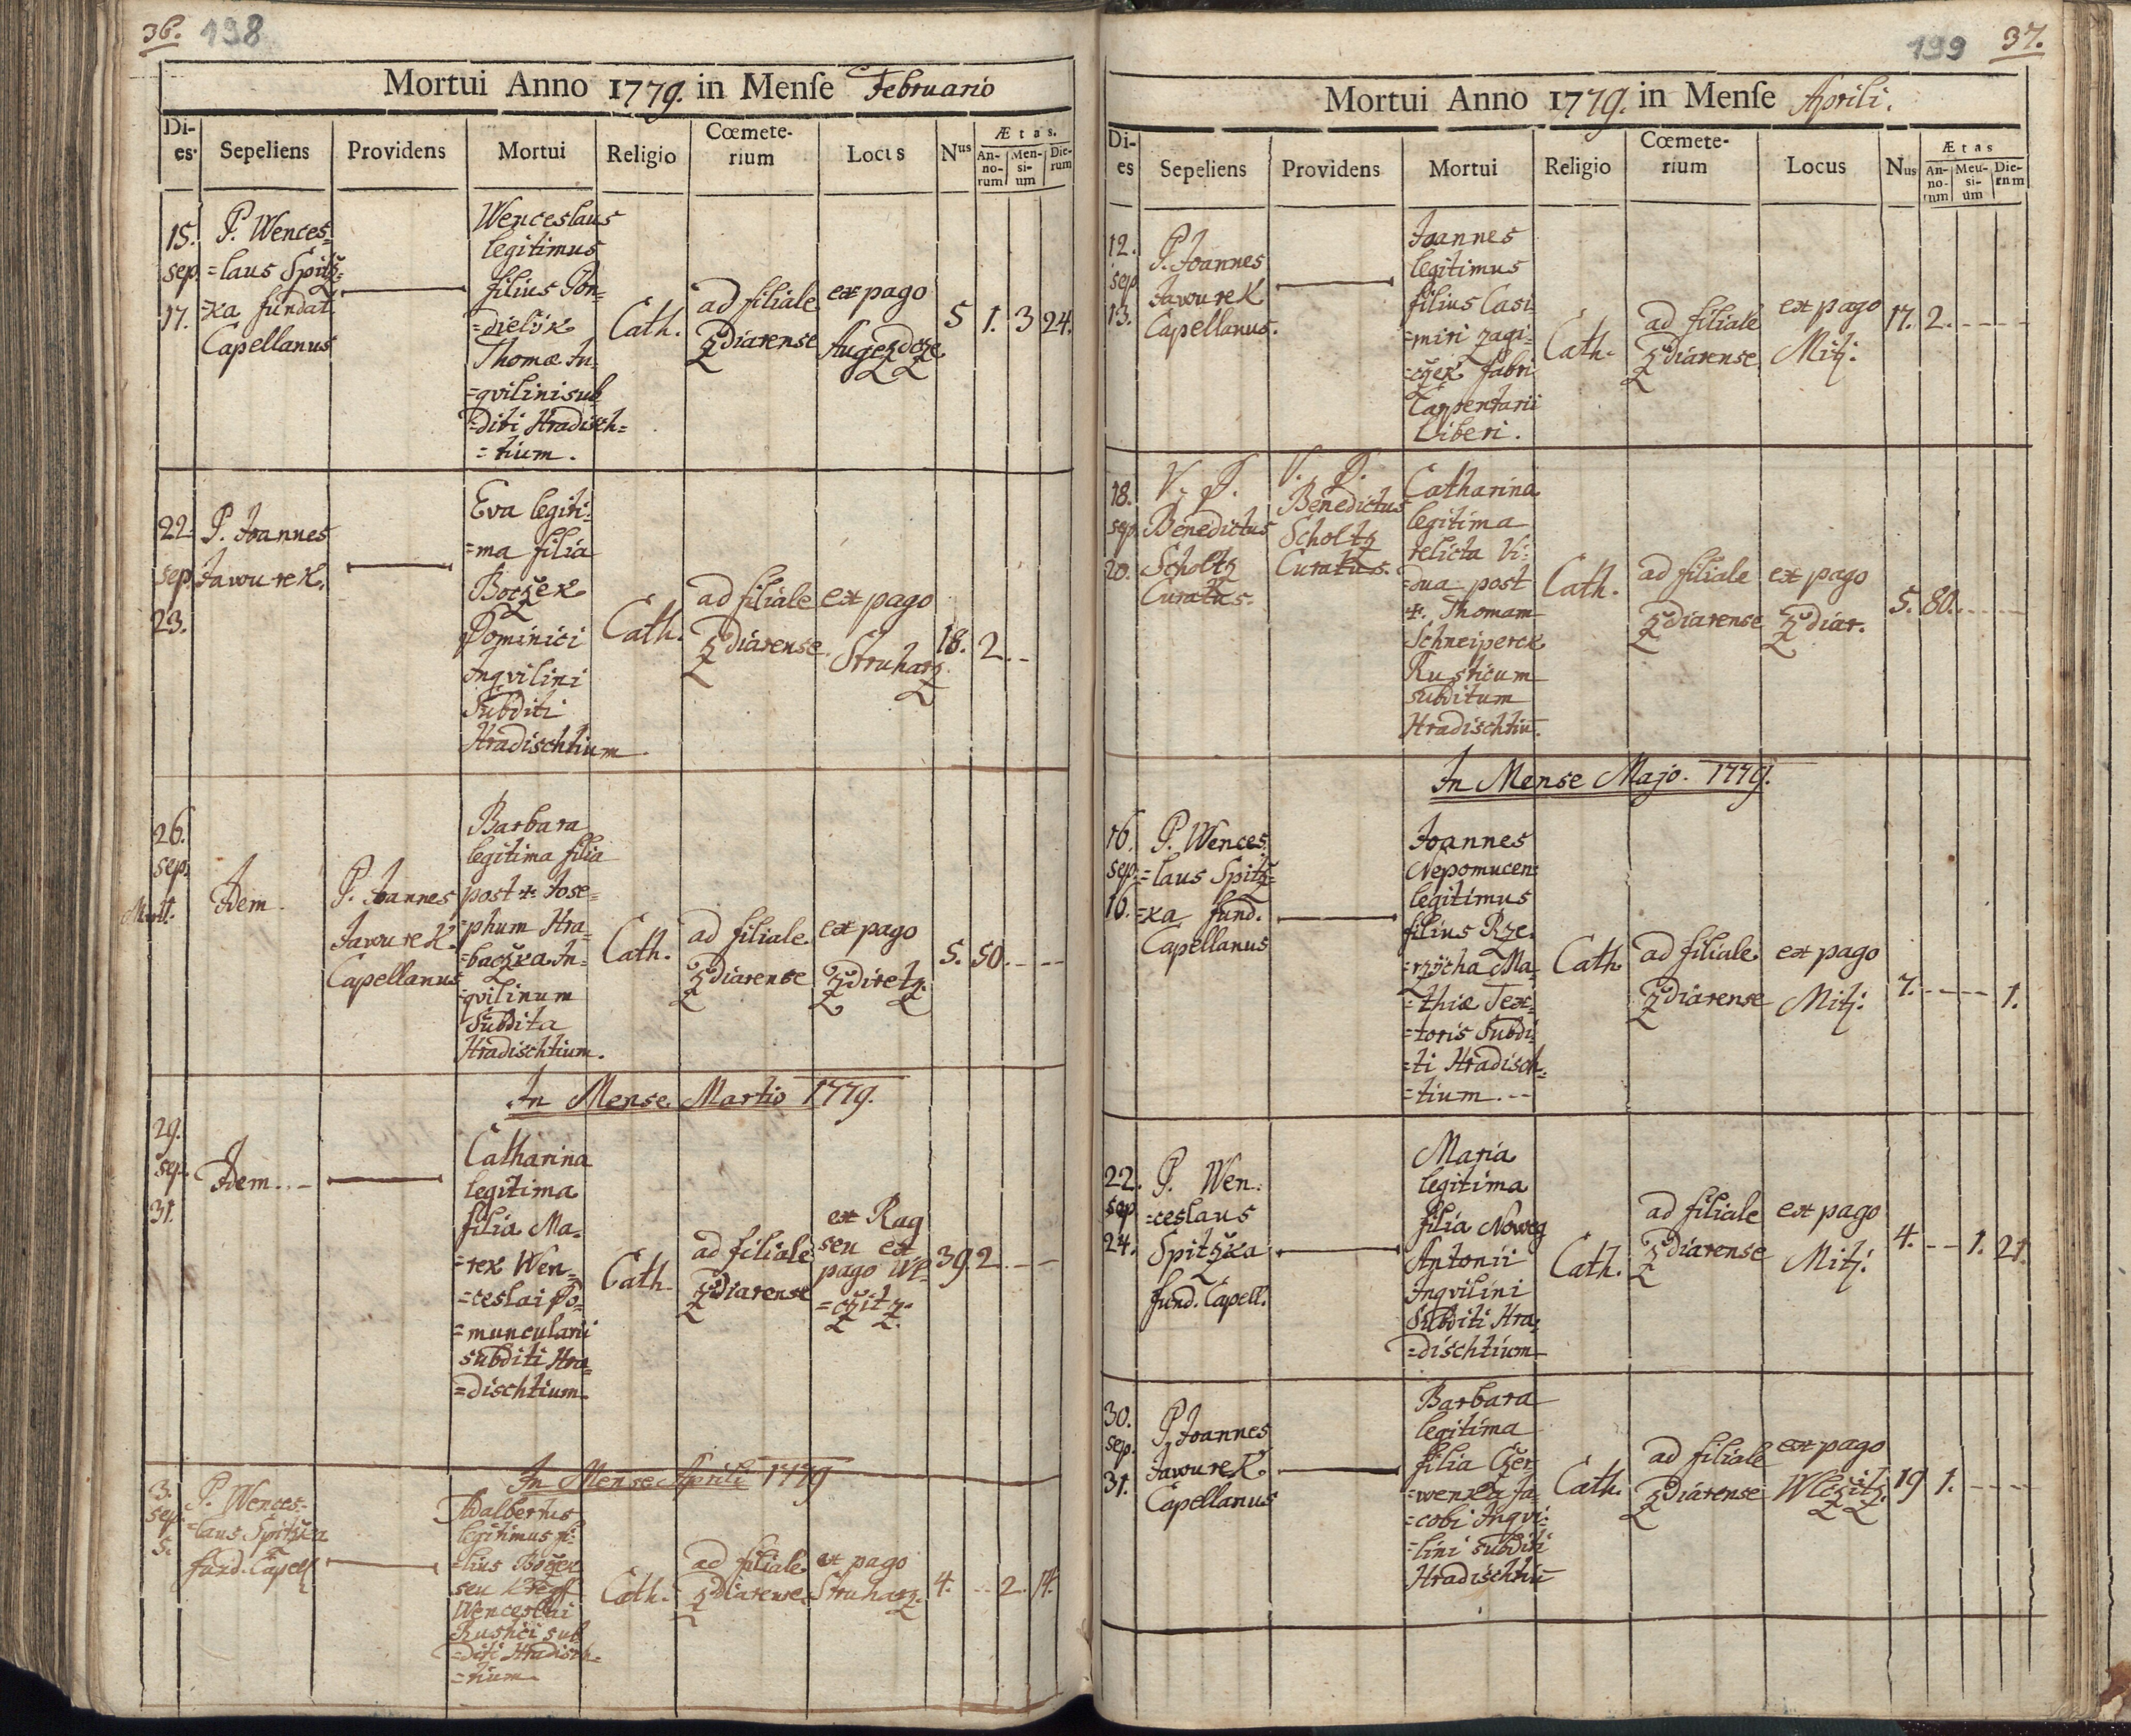 36. 198
Mortui Anno 1779. in Menſe Februario
Di-
es.
Sepeliens
Providens
Mortui
Religio
Cœmete-
rium
Locus
Nus
Ætas.
An-
no-
rum
Men-
si-
um
Die-
rum
15.
sep.
17.
P. Wences=
=laus Spitž=
=ka fundat.
Capellanus
Wenceslaus
legitimus
filius Pon=
=dielik
Thomæ In=
=qvilini sub
=diti Hradisch=
=tium.
Cath.
ad filiale
Ždiarense
ex pago
5 1. 3 24.
22.
sep.
23.
P. Joannes
Jawurek.
Eva legiti=
=ma filia
Boczek
Dominici
Inqvilini
Subditi
Hradischtium.
Cath.
ad filiale
Ždiarense.
ex pago
Struharz
18. 2. -
26.
sep.
Idem.
P. Joannes
Jawurek.
Capellanus
Barbara
legitima filia
post + Jose=
=phum Hra=
=baczka In=
=qvilinum
Subdita
Hradischtium.
Cath.
ad filiale
Ždiarense
ex pago
Ždiretz.
5. 50. - - -
In Mense Martio 1779.
29.
sep.
31.
Idem. . -
Catharina
legitima
filia Ma=
=rek Wen=
=ceslai Do=
=muncularii
subditi Hra=
=dischtium.
Cath.
ad filiale
Ždiarense
ex Rag
seu ex
pago Wl=
=czitz.
39. 2. - -
In Mense Aprili 1779
3.
sep.
5.
P. Wences=
=laus Spitžka
fund. Capell
Adalbertus
legitimus fi=
=lius Boczek
seu
Wenceslai
Rustici sub
=diti Hradisch=
=tium.
Cath.
ad filiale
Ždiarense.
ex pago
Struharz.
4. -- 2. 14.
199 37.
Mortui Anno 1779. in Menſe Aprili.
Di-
es
Sepeliens
Providens
Mortui
Religio
Cœmete-
rium
Locus
Nus
Ætas
An-
no-
rum
Men-
si-
um
Die-
rum
12.
sep.
13.
P. Joannes
Jawurek
Capellanus.
Joannes
legitimus
filius Casi
=miri Zagi=
=czek fabri
Carpentarii
Liberi.
Cath.
ad filiale
Ždiarense
ex pago
Mitz.
17. 2. - - - -
18.
sep.
20.
V. P.
Benedictus
Scholtz
Curatus.
V. P.
Benedictus
Scholtz
Curatus.
Catharina
legitima
relicta Vi=
=dua post
+. Thomam
Schneiperck
Rusticum
subditum
Hradischtiu̅.
Cath.
ad filiale
Ždiarense
ex pago
Ždiar.
5. 80. - - - -
In Mense Majo. 1779.
16.
sep.
16.
P. Wences=
=laus Spitž=
=ka fund.
Capellanus
Joannes
Nepomucen:
legitimus
filius Rze=
=rzicha Ma=
=thiæ Tex=
=toris Subdi=
=ti Hradisch=
=tium. --
Cath.
ad filiale
Ždiarense
ex pago
Mitz.
7. - - - - 1.
22.
sep.
24.
P. Wen=
=ceslaus
Spitžka
fund. Capell.
Maria
legitima
filia Noweg
Antonii
Inqvilini
Subditi Hra=
=dischtium
Cath.
ad filiale
Ždiarense
ex pago
Mitz.
4. -- 1. 21.
30.
sep.
31.
P. Joannes
Jawurek
Capellanus
Barbara
legitima
filia Czer=
=wenka Ja=
=cobi Inqvi=
=lini subditi
Hradischtiu̅
Cath.
ad filiale
Ždiarense
ex pago
Wlczitz.
19 1. - - - -